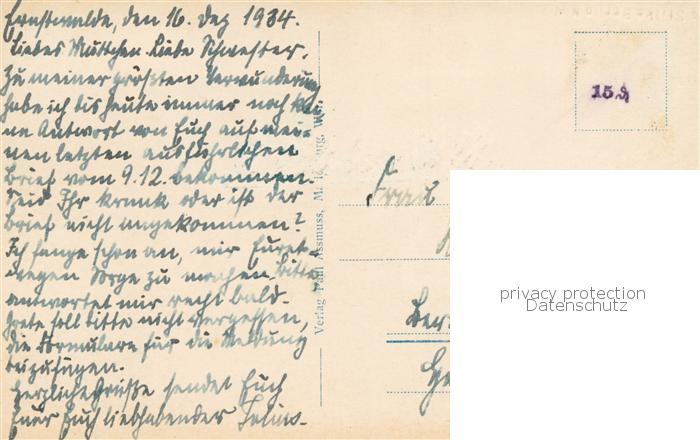 Ernstwalde, den 16. Dez 1934.
Liebes Muttchen. Liebe Schwester.
Zu meiner größten Verwunderung
habe ich bis heute immer noch kei-
ne Antwort von Euch auf mei-
nen letzten ausführlichen
Brief vom 9.12. bekommen.
Seid Ihr krank oder ist der
Brief nicht angekommen?
Ich fange schon an, mir Euret-
wegen Sorge zu machen. Bitte
antwortet mir recht bald.
Grete soll bitte nicht vergessen,
die Formulare für die Meldung
beizufügen.
Herzliche Grüße sendet Euch
Euer Euch liebhabender Julius.
Verlag Paul Assmuss,
15 ₰
Frau
privacy protection
Datenschutz